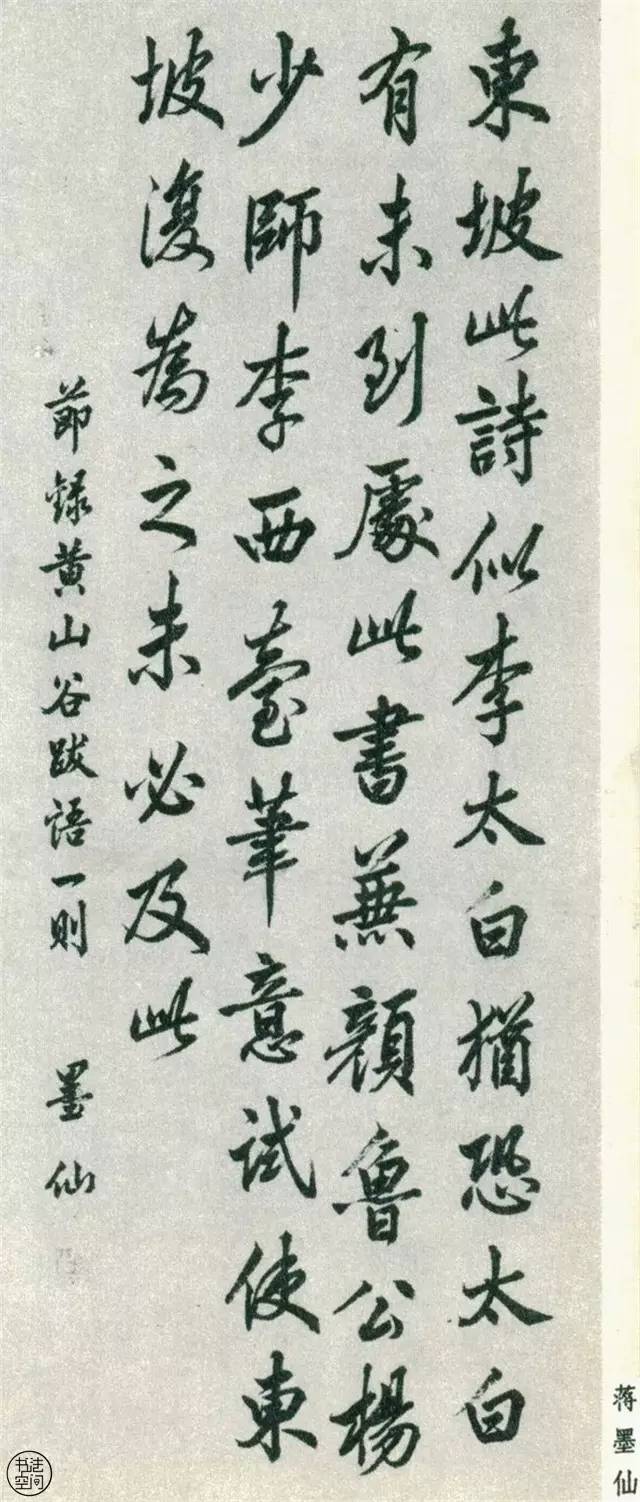 東坡此詩似李太白猶恐太白
有未到處此書兼顏魯公楊
少師李西臺筆意試使東
坡復為之未必及此
節錄黃山谷跋語一則 墨仙
蒋墨仙
书法空间